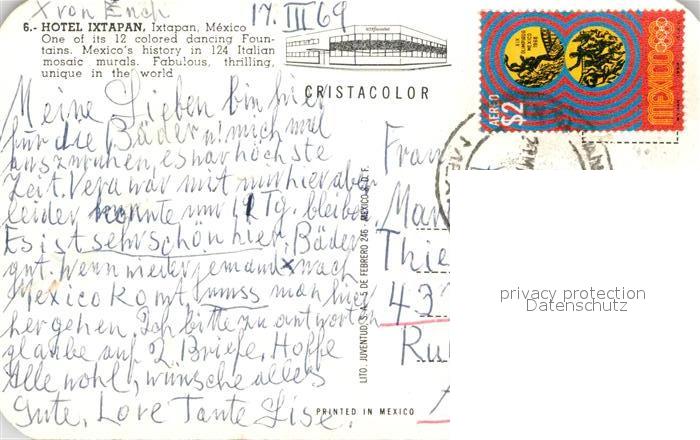 x von Euch
17. III 69
6.- HOTEL IXTAPAN, Ixtapan, México
One of its 12 colored dancing Foun-
tains. Mexico's history in 124 Italian
mosaic murals. Fabulous, thrilling,
unique in the world
CRISTACOLOR
AEREO $2
MEXICO
Meine Lieben bin hier
für die Bäder u! mich mal
auszuruhen, es war höchste
Zeit. Vera war mit mir hier aber
leider konnte nur Tg. bleiben
Es ist sehr schön hier, Bäder
gut. Wenn wieder jemand nach
Mexico komt, muss man hier
hergehen. Ich bitte zu antworten
glaube auf 2 Briefe, Hoffe
Alle wohl, wünsche alles
Gute, Love Tante Lise.
LITO. JUVENTUD, S. A. 5 DE FEBRERO 246 - MEXICO 8, D. F.
PRINTED IN MEXICO
Frau
Man
Thie
437
Ru
privacy protection
Datenschutz